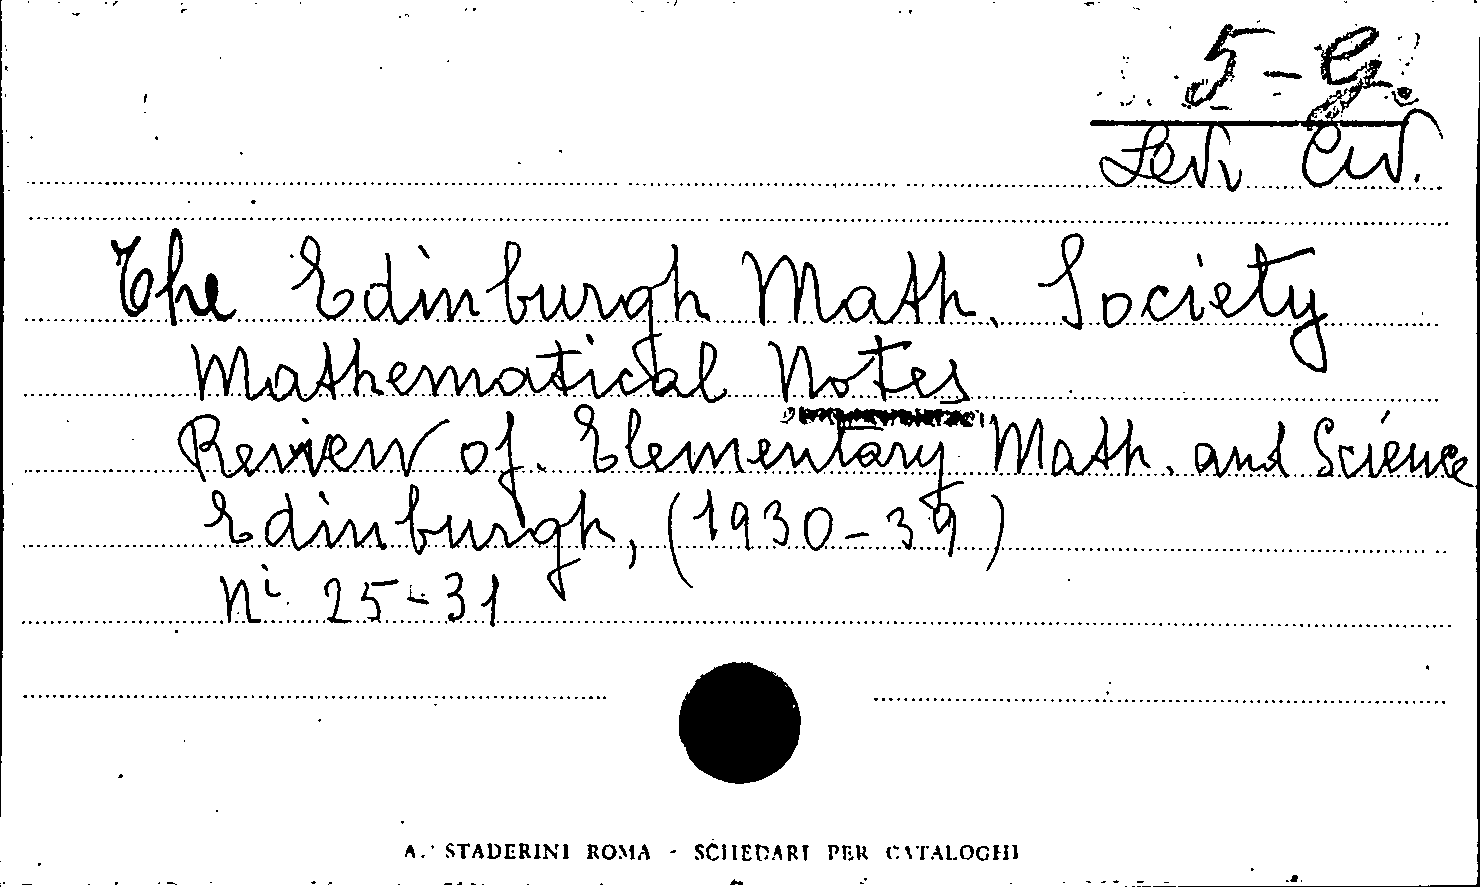 5-G.
Levi Civ.
The Edinburgh Math. Society
Mathematical Notes
Review of. Elementary Math. and Science
Edinburgh, (1930-39)
Ni 25-31
A. STADERINI ROMA - SCHEDARI PER CATALOGHI